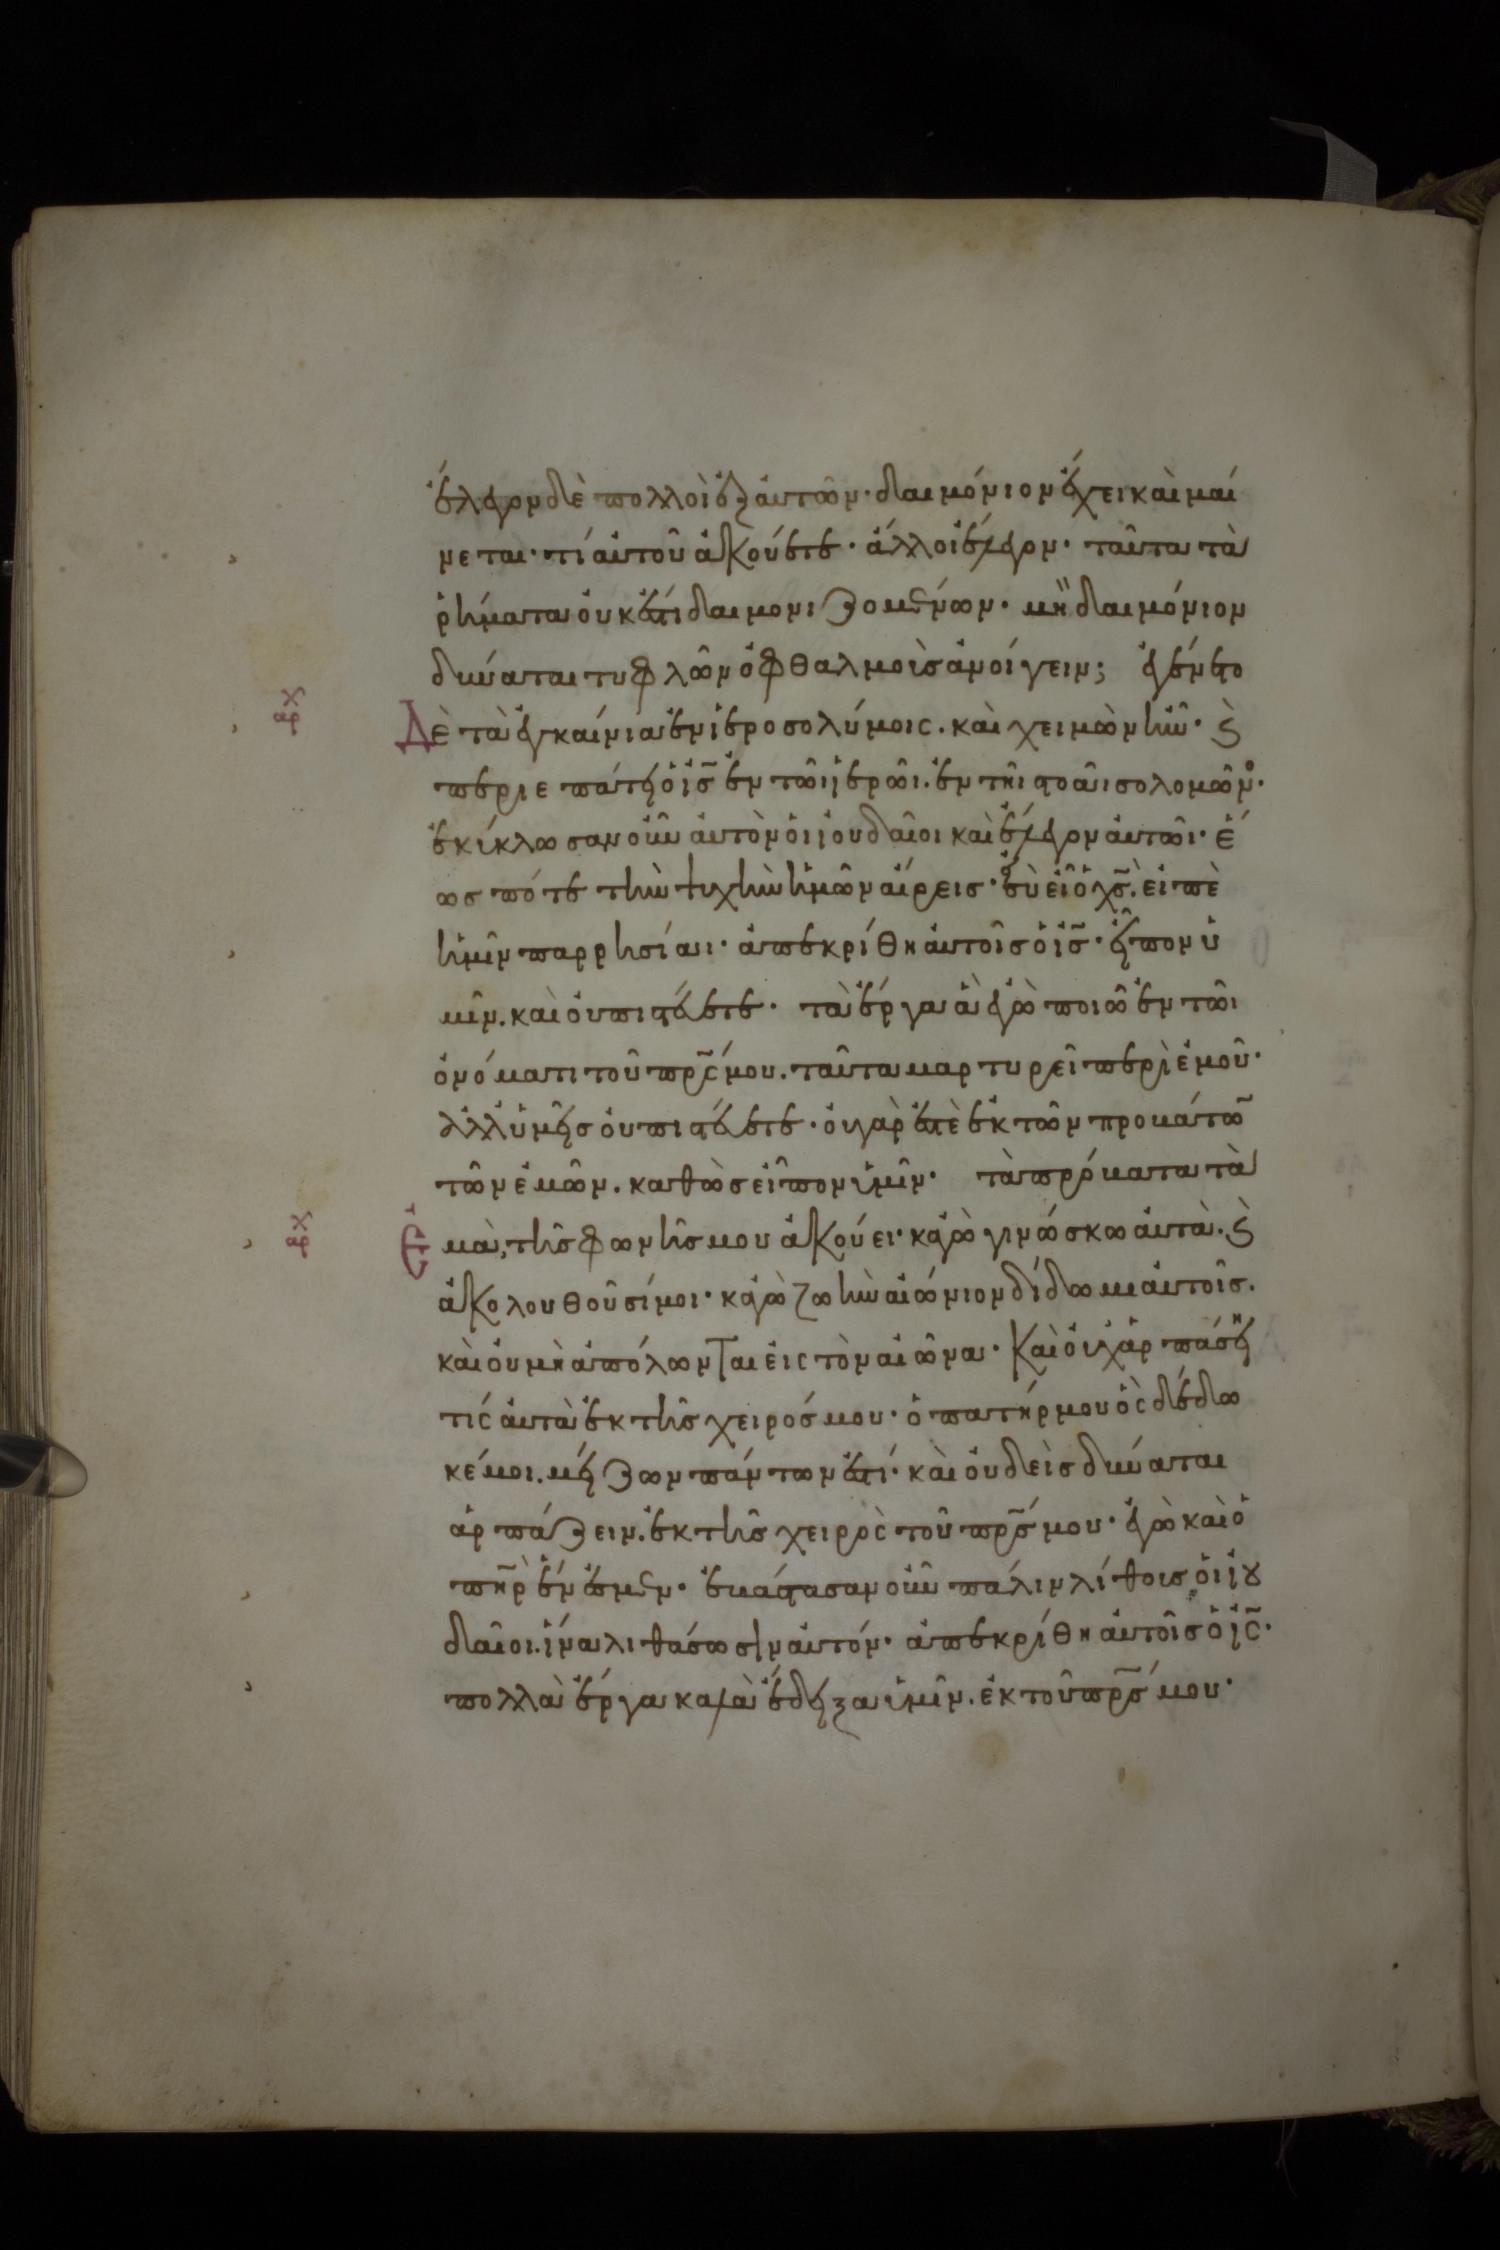 ἔλεγον δὲ πολλοὶ ἐξ αὐτῶν· δαιμόνιον ἔχει καὶ μαί
νεται· τί αὐτοῦ ἀκούετε· ἄλλοι ἔλεγον· ταῦτα τὰ
ῥήματα οὐκ ἔστι δαιμονιζομένων· μὴ δαιμόνιον
δύναται τυφλῶν ὀφθαλμοὺς ἀνοίγειν; ἐγένετο
αρχ
Δὲ τὰ ἐγκαίνια ἐν ἱεροσολύμοις. καὶ χειμὼν ἦν· ϗ
περιεπάτει ὁ ις̅ ἐν τῶι ἱερῶι. ἐν τῆι στοᾶι σολομῶνο.
ἐκύκλωσαν οὖν αὐτὸν οἱ ἰουδαῖοι καὶ ἔλεγον αὐτῶι· ἕ
ως πότε τὴν ψυχὴν ἡμῶν αἴρεις· εἰ σὺ εἶ ὁ χς̅. εἰπὲ
ἡμῖν παρρησίαι· ἀπεκρίθη αὐτοῖς ὁ ις̅· εἶπον ὑ
μῖν. καὶ οὐ πιστεύετε· τὰ ἔργα ἃ ἐγὼ ποιῶ ἐν τῶι
ὀνόματι τοῦ πρς̅ μου. ταῦτα μαρτυρεῖ περὶ ἐμοῦ·
ἀλλ' ὑμεῖς οὐ πιστεύετε· οὐ γὰρ ἐστὲ ἐκ τῶν προβάτω̅
τῶν ἐμῶν. καθὼς εἶπον ὑμῖν· τὰ πρόβατα τὰ
αρχ
ἐμὰ, τῆς φωνῆς μου ἀκούει· κἀγὼ γινώσκω αὐτὰ. ϗ
ἀκολουθοῦσί μοι· κἀγὼ ζωὴν αἰώνιον δίδωμι αὐτοῖς.
καὶ οὐ μὴ ἀπόλωνται εἰς τὸν αἰῶνα· Καὶ οὐχ ἁρπάσει
τίς αὐτὰ ἐκ τῆς χειρός μου· ὁ πατήρ μου ὃς δέδω
κέ μοι. μείζων πάντων ἐστί· καὶ οὐδεὶς δύναται
ἁρπάζειν. ἐκ τῆς χειρὸς τοῦ πρς̅ μου· ἐγὼ καὶ ὁ
πη̅ρ ἕν ἐσμεν· ἐβάστασαν οὖν πάλιν λίθους οἱ ἰου
δαῖοι. ἵνα λιθάσωσιν αὐτόν· ἀπεκρίθη αὐτοῖς ὁ ις̅·
πολλὰ ἔργα καλὰ ἔδειξα ὑμῖν. ἐκ τοῦ πρς̅ μου·